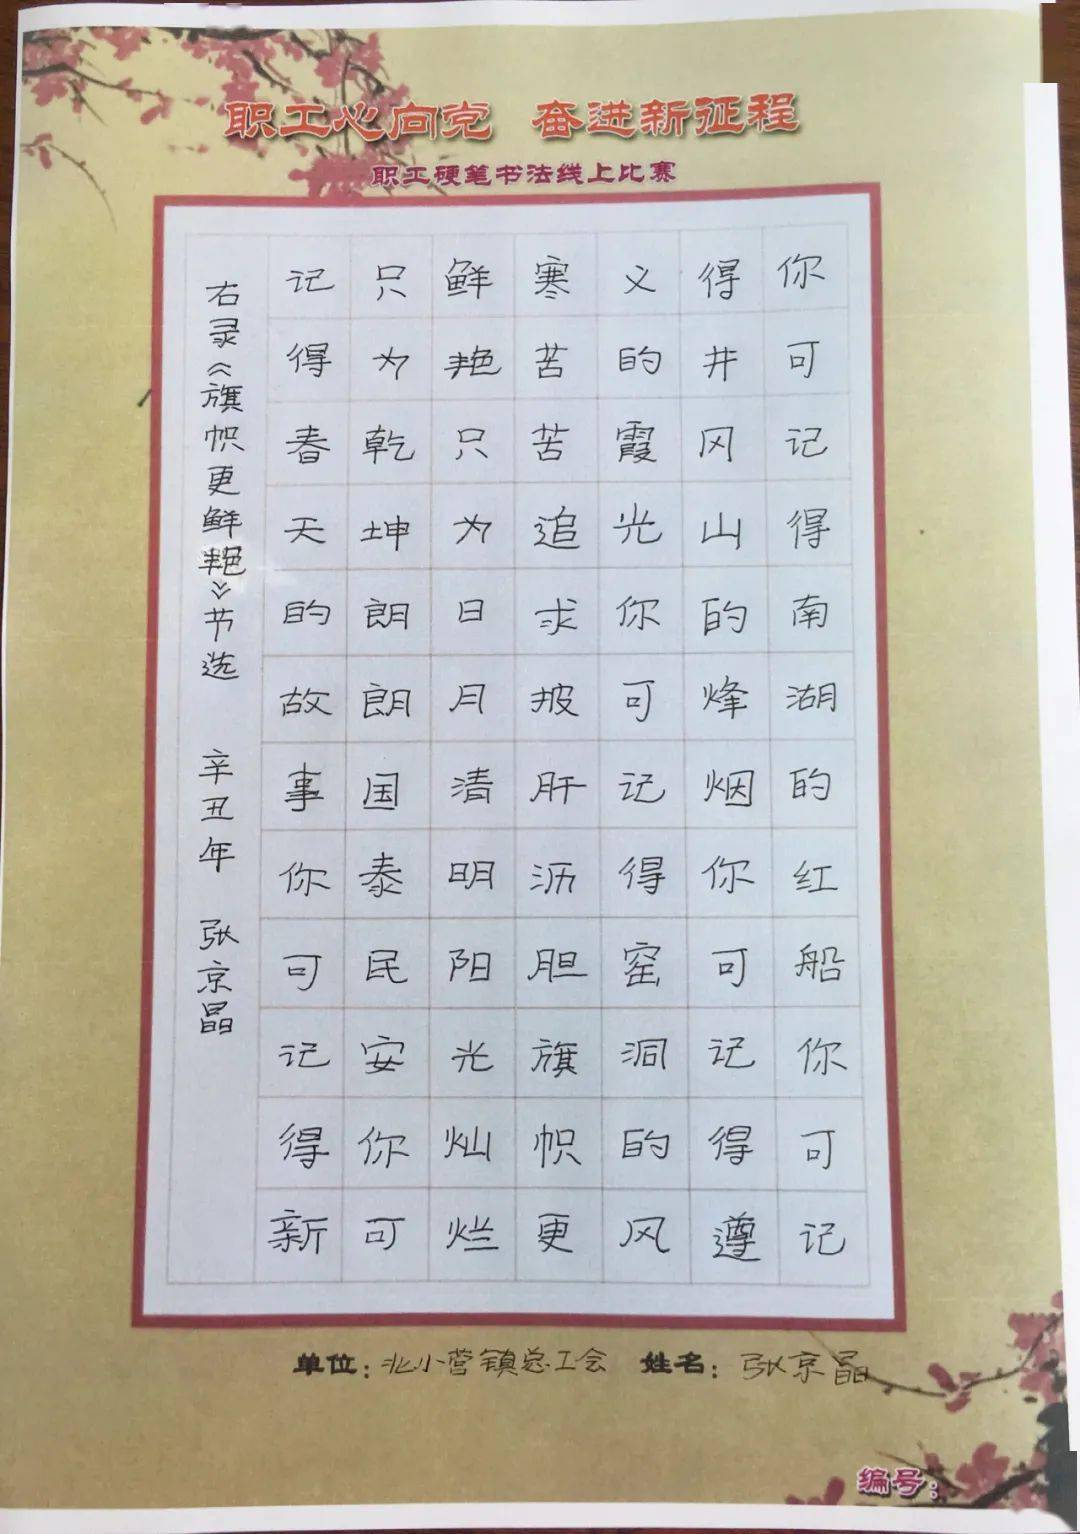 职工心向党 奋进新征程
职工硬笔书法线上比赛
你可记得南湖的红船你可记
得井冈山的烽烟你可记得遵
义的霞光你可记得窑洞的风
寒苦苦追求披肝沥胆旗帜更
鲜艳只为日月清明阳光灿烂
只为乾坤朗朗国泰民安你可
记得春天的故事你可记得新
右录《旗帜更鲜艳》节选 辛丑年 张京晶
单位：北小营镇总工会 姓名：张京晶
编号：